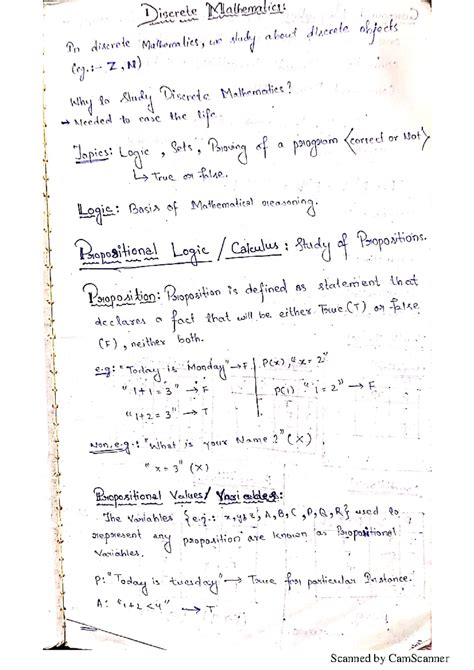 Discrete Mathematics:
In discrete Mathematics, we study about discrete objects
(eg.:- Z, N)
Why to Study Discrete Mathematics?
→ Needed to ease the life.
Topics: Logic, Sets, Proving of a program <correct or Not>
↳ True or false.
Logic: Basis of Mathematical reasoning.
Propositional Logic / Calculus: Study of Propositions.
Proposition: Proposition is defined as statement that
declares a fact that will be either True (T) or false
(F), neither both.
e.g: "Today is Monday" → F | P(x), "x = 2"
"1+1 = 3" → F | P(1) "1 = 2" → F
"1+2 = 3" → T
Non. e.g.: "What is your Name?" (X)
"x = 3" (X)
Propositional Values/ Variables:
The Variables {e.g.: x, y, z, A, B, C, P, Q, R} used to
represent any proposition are known as Propositional
Variables.
P: "Today is tuesday" → True for particular Instance.
A: "1+2 < 4" → T
Scanned by CamScanner